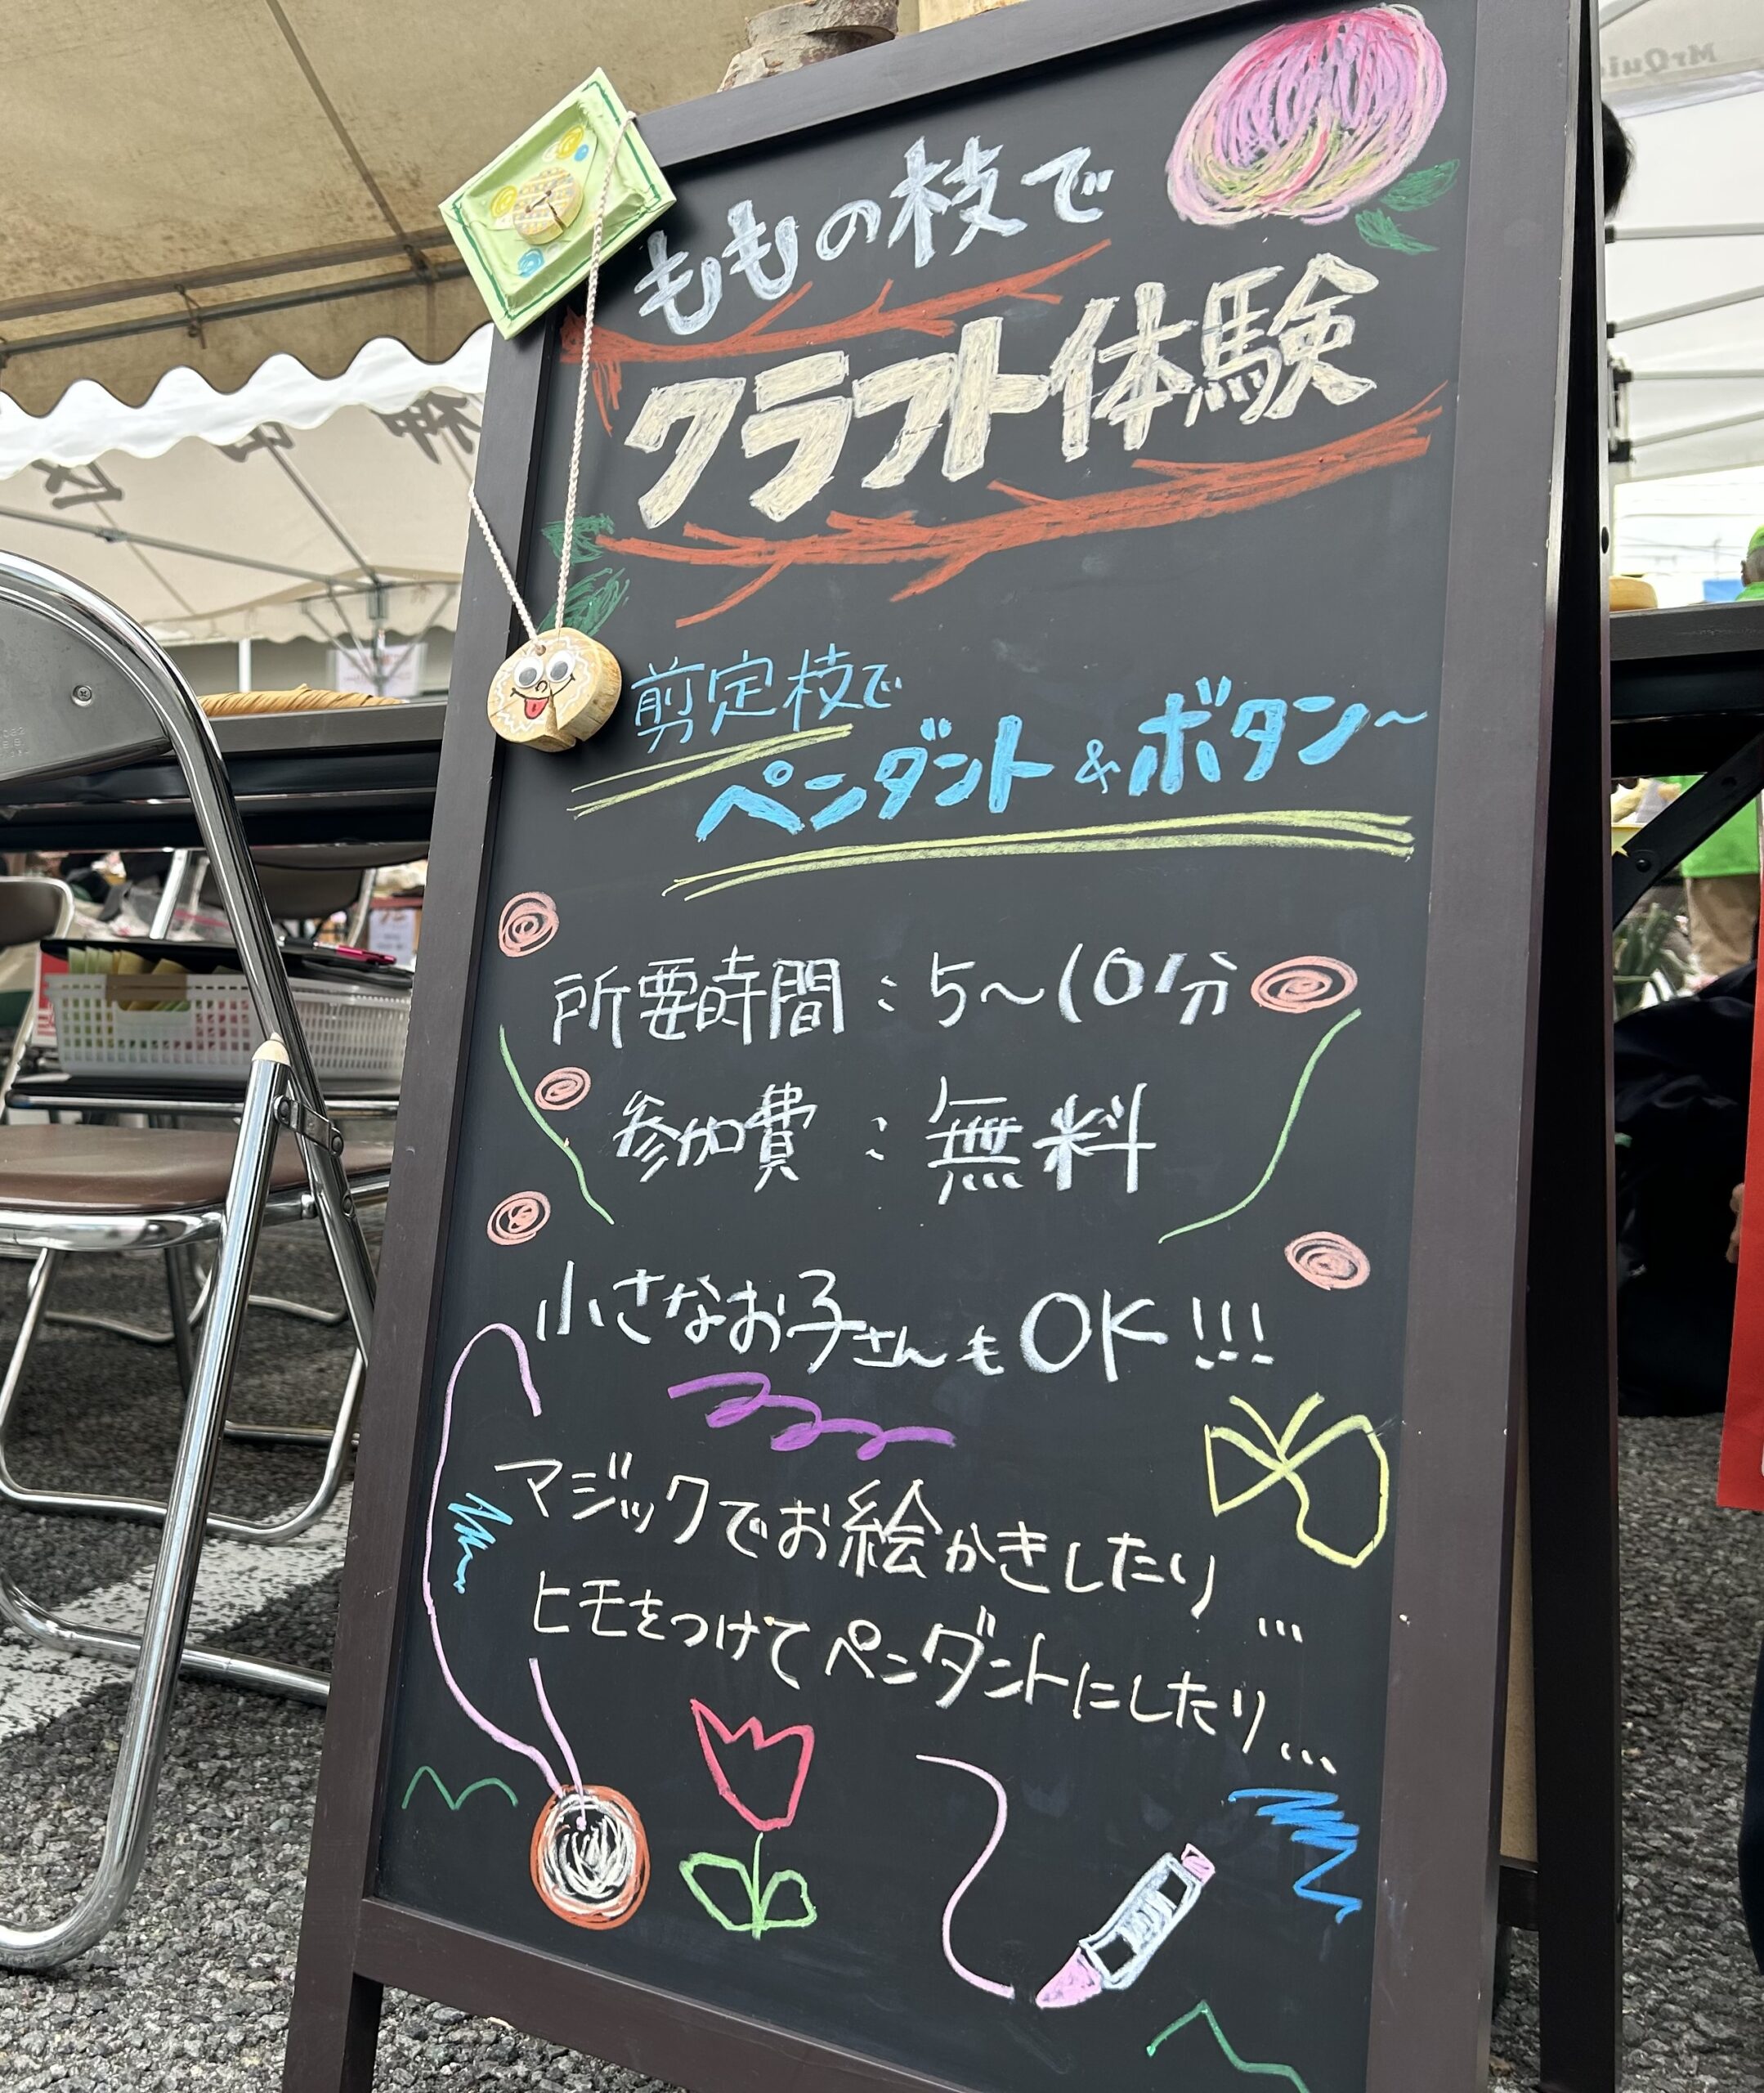 ももの枝で
クラフト体験
剪定枝で
ペンダント&ボタン〜
所要時間:5〜10分
参加費:無料
小さなお子さんもOK!!!
マジックでお絵かきしたり...
ヒモをつけてペンダントにしたり...